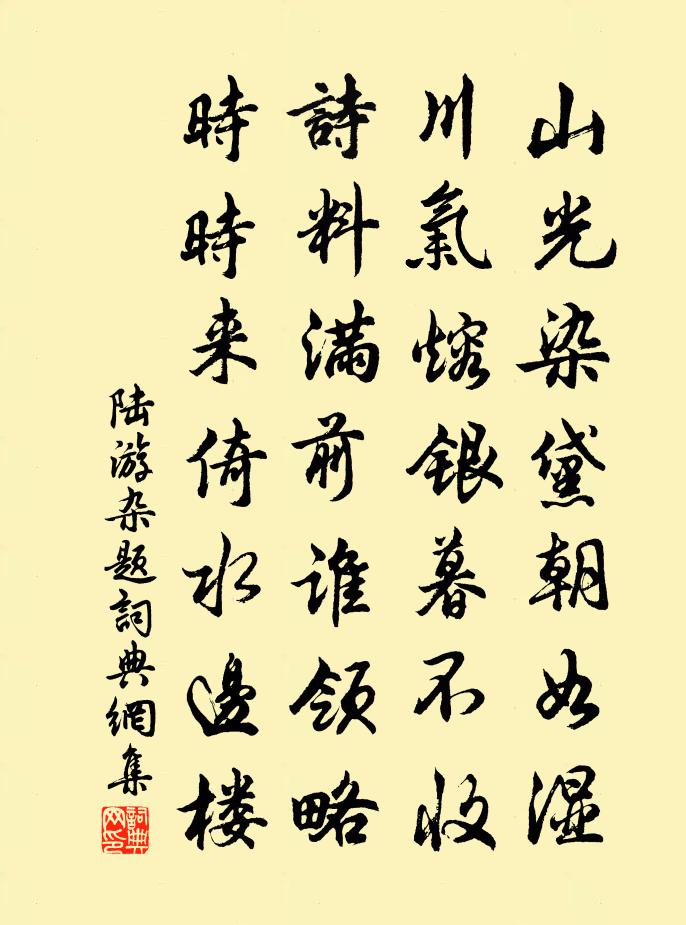 山光染黛朝如湿
川氣熔銀暮不收
詩料滿前誰領略
時時来倚水邊楼
陆游杂题詞典網集
詞典网印